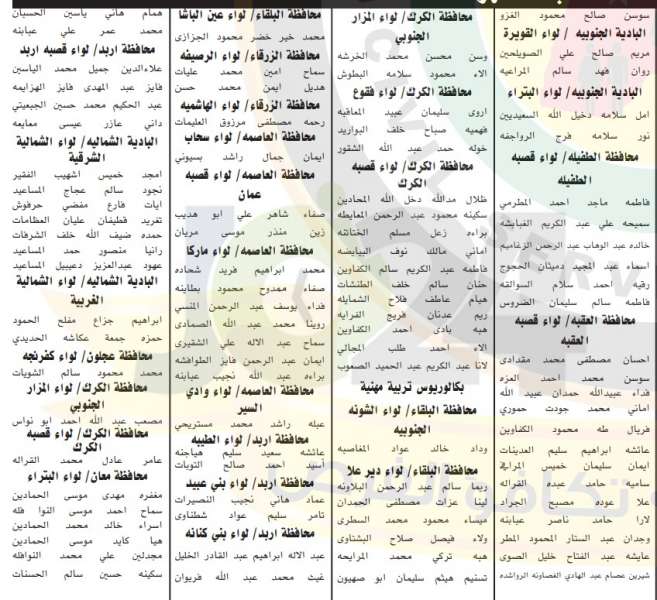 سوسن صالح محمود الغزو
البادية الجنوبيه / لواء القويرة
مريم صالح علي الصويلحين
روان فهد سالم المراعيه
البادية الجنوبيه/ لواء البتراء
امل سلامه دخيل الله السعيديين
نور سلامه فرج الرواجفه
محافظة الطفيله/ لواء قصبه
الطفيله
فاطمه ماجد احمد المطرمي
سميحه علي عبد الكريم الغبابشه
خالده عبد الوهاب عبد الرحمن الزغاميم
اسماء عبد المجيد دميثان الحجوج
رقيه احمد سلام السوالقه
فاطمه سالم سليمان الضروس
محافظة العقبه/ لواء قصبه
العقبه
احسان مصطفى محمد مقدادى
سوسن محمد احمد العزه
فداء عبيدالله حمدان عبيد الله
اماني محمد جودت حموري
فريال طه محمود الكفاوين
عائشه ابراهيم سليم العدينات
ايمان سليمان خميس المراقي
ساميه حامد عبده القراله
علا عوده مصبح الجراد
لارا حامد ناصر عبابنه
وجدان عبد الستار المحمود المطر
عايشه عبد الفتاح خليل الصوى
شيرين عصام عبد الهادي الغصاونه الرواشده
محافظة الكرك/ لواء المزار
الجنوبي
وسن محسن محمد الخرشه
الاء محمود سلامه البطوش
محافظة الكرك/ لواء فقوع
اروى سليمان عبيد المعاقبه
فهميه صباح خلف البواريد
خوله حمد عبد الله الشقور
محافظة الكرك/ لواء قصبه
الكرك
ظلال مدالله دخل الله المحادين
سكينه محمود عبد الرحمن المعايطه
براءه زعل مسلم الختاتنه
اماني مالك نوف البيايضه
فاطمه عبد الكريم سالم الكفاوين
حنان سالم خلف الطنشات
هيام عاطف فلاح الشمايله
ريم عدنان فريج الفرايه
هبه بادى احمد الكفاوين
الاء احمد طلب المجالي
لانا عبد الكريم عبد الحميد الصعوب
بكالوريوس تربية مهنية
محافظة البلقاء/ لواء الشونه
الجنوبيه
وداد خالد عواد المغاصبه
محافظة البلقاء/ لواء دير علا
ريما سالم عبد الرحمن البلاونه
لينا عزات مصطفى الحمدان
ميساء محمود محمد السطرى
ولاء فيصل صلاح البشتاوى
هبه تركي محمد المرايحه
تسنيم هيثم سليمان ابو صهيون
محافظة البلقاء/ لواء عين الباشا
محمد خير خضر محمود الجزازى
محافظة الزرقاء/ لواء الرصيفه
سماح امين محمد عليات
هديل ايمن محمد حسن
محافظة الزرقاء/ لواء الهاشميه
رحمه مصطفى مرزوق العليمات
محافظة العاصمه/ لواء سحاب
ايمان جمال راشد بسيوني
محافظة العاصمه/ لواء قصبه
عمان
صفاء شاهر علي ابو هديب
زين منذر موسى مريان
محافظة العاصمه/ لواء ماركا
محمد ابراهيم فريد شحاده
صفاء ممدوح محمود بطاينه
فداء يوسف عبد الرحمن المنسي
روينا محمد عبد الله الصمادى
سماح عبد الاله علي الشقيرى
ايمان عبد الرحمن فايز الطوافشه
براءه عبد الله نجيب عبابنه
محافظة العاصمه/ لواء وادي
السير
عبله راشد محمد مستريحي
محافظة اربد/ لواء الطيبه
عائشه سعيد سليم هياجنه
أسيد احمد صالح التويات
محافظة اربد/ لواء بني عبيد
عماد هاني نجيب النصيرات
تامر سليم عواد شطناوى
محافظة اربد/ لواء بني كنانه
عبد الاله ابراهيم عبد القادر الخليل
غيث محمد عبد الله فريوان
همام هاني ياسين الحسبان
محمد عمر علي عبابنه
محافظة اربد/ لواء قصبه اربد
علاءالدين جميل محمد الياسين
فايز عبد المهدى فايز الهزايمه
عبد الحكيم محمد حسين الجبعيتي
داني عازر عيسى معايعه
البادية الشماليه/ لواء الشمالية
الشرقية
امجد خميس اشهيب الفقير
نجود سالم عجاج المساعيد
ايات فارع مفضي حرفوش
تغريد قطيفان عليان العظامات
حمده ضيف الله خلف الشرفات
رانيا منصور حمد المساعيد
عهود عبدالعزيز دعيبيل المساعيد
البادية الشماليه/ لواء الشمالية
الغربية
ابراهيم جزاع مفلح الحمود
حمزه جمعة عكاشه الحديدي
محافظة عجلون/ لواء كفرنجه
محمد محمود سالم الشويات
محافظة الكرك/ لواء المزار
الجنوبي
مصعب عبد الله احمد ابو نواس
محافظة الكرك/ لواء قصبه
الكرك
عامر عادل محمد القراله
محافظة معان/ لواء البتراء
مغفره مهدى موسى الحمادين
سماح احمد موسى النوا فله
اسراء خالد محمد الحمادين
هيا كايد موسى الحمادين
مجدلين علي محمد النوافله
سكينه حسين سالم الحسنات